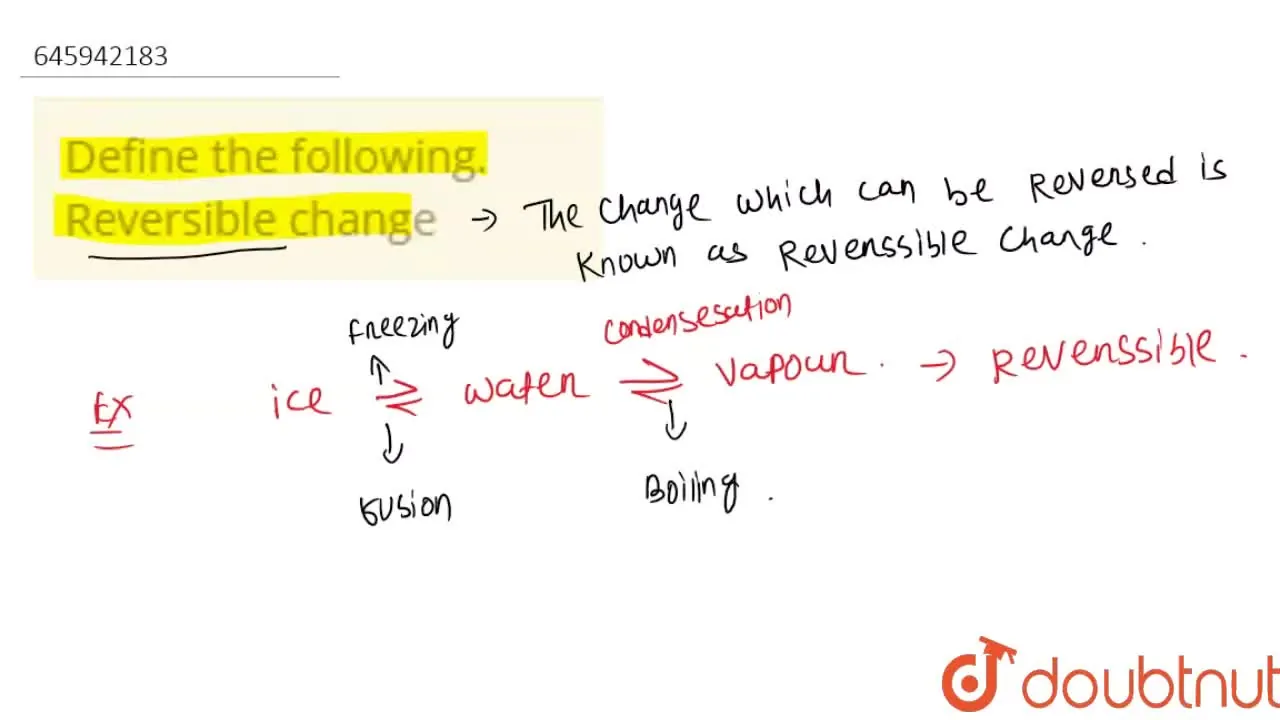 645942183
Define the following.
Reversible change → The change which can be Reversed is
known as Revenssible change.
Freezing
condensesation
Ex ice ⇌ water ⇌ vapour. → Revenssible.
Fusion
Boiling.
doubtnut